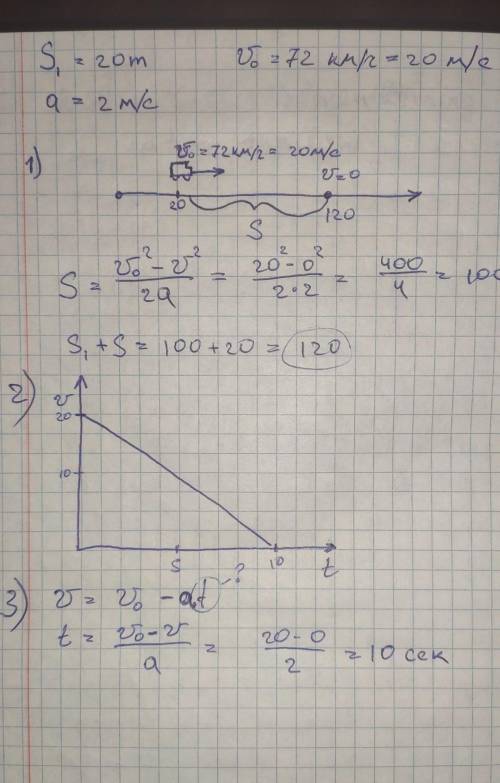 S₁ = 20m v₀ = 72 км/г = 20 м/с
a = 2 м/с
1) v₀ = 72км/г = 20м/с
v=0
20 120
S
S = (v₀² - v²)/2a = (20² - 0²)/(2·2) = 400/4 = 100
S₁ + S = 100 + 20 = 120
2) v
20
10
5 10 t
3) v = v₀ - at - ?
t = (v₀ - v)/a = (20 - 0)/2 = 10 сек